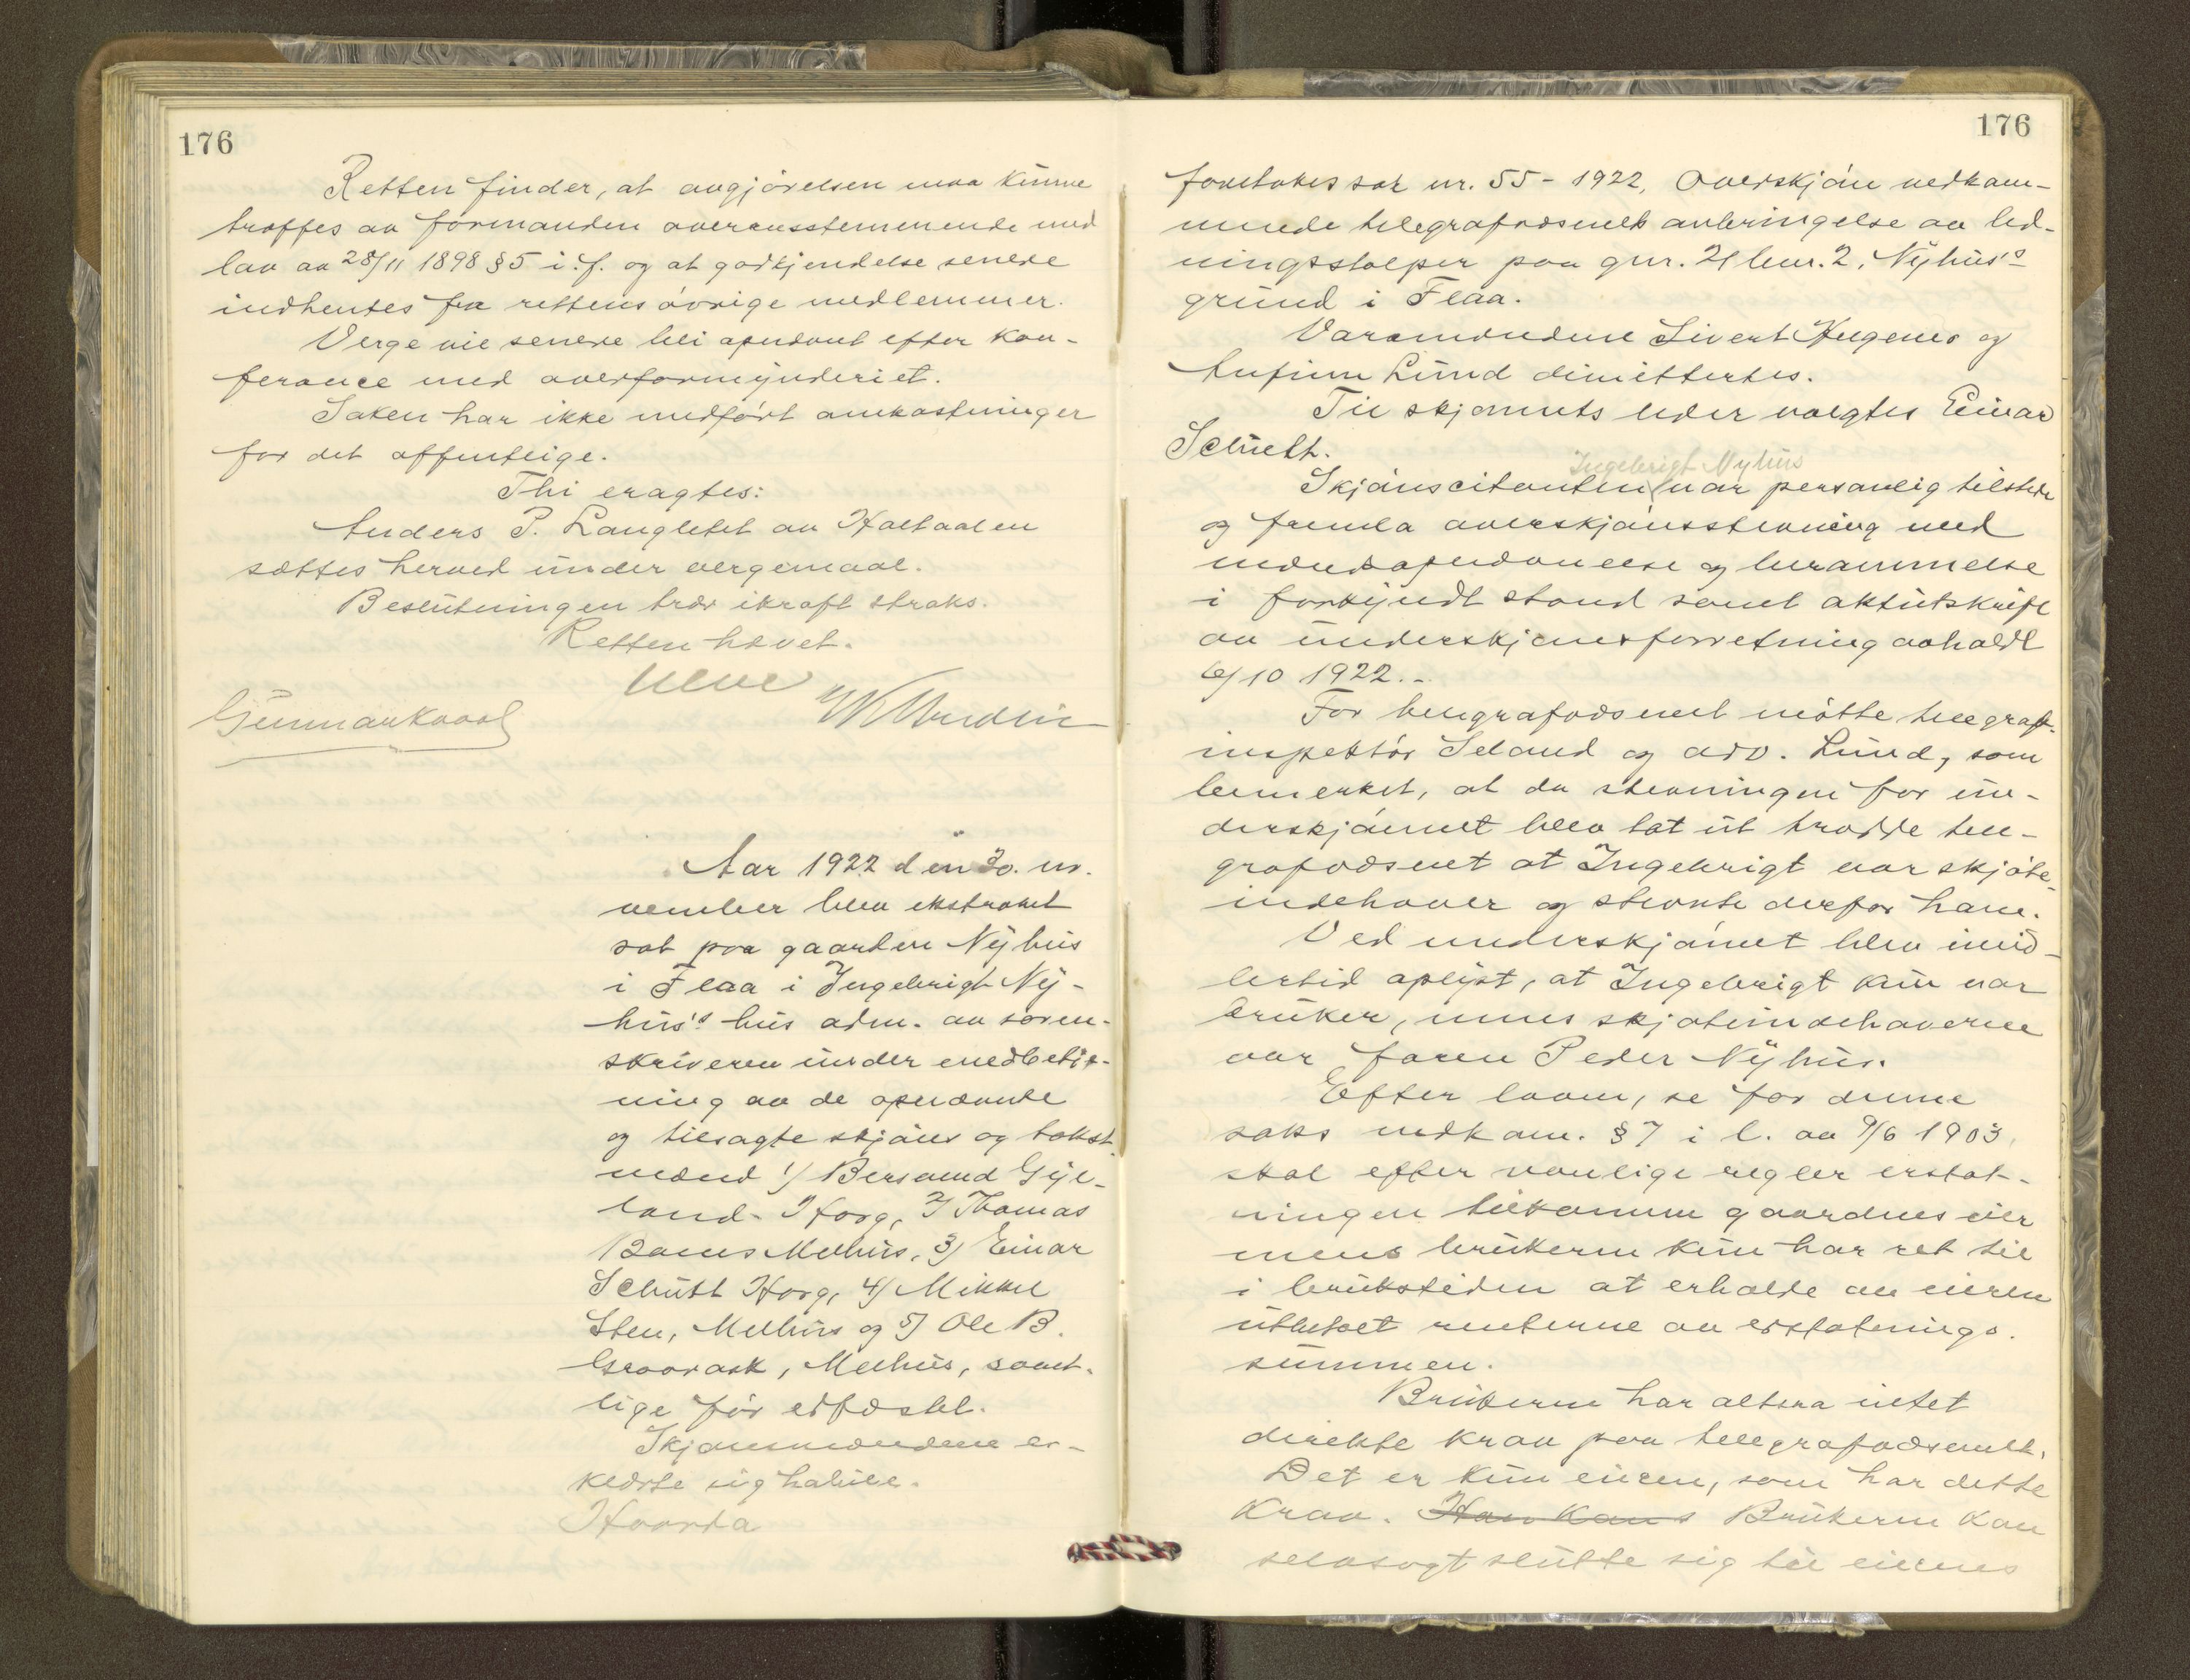 176
Retten finder, at avgjörelsen maa kunne
træffes av formanden overensstemmende med
lov av 28/11 1898 § 5 i. f. og at godkjendelse senere
indhentes fra rettens övrige medlemmer.
Verge vil senere bli opnævnt efter kon-
ferance med overformynderiet.
Saken har ikke medfört omkostninger
for det offentlige.
Thi eragtes:
Anders P. Langletet av Haltdalen
sættes herved under vergemaal.
Beslutningen trær ikraft straks.
Retten hævet.
Aar 1922 den 30. no-
vember blev ekstraret
sat paa gaarden Nyhus
i Flaa i Ingebrigt Ny-
hus's hus adm. av soren-
skriveren under medbetje-
ning av de opnævnte
og tilsagte skjöns og takst
mænd 1/ Bersvend Gyl-
land- Horg, 2/ Thomas
Melhus, 3/ Einar
Schult Horg, 4/ Mikkel
Sten, Melhus og 5/ Ole B.
Melhus, samt-
lige för edfæstet.
Skjönsmændene er-
klærte sig habile.
Hvorda
176
foretokes sak nr. 55 - 1922, Overskjön vedkom-
mende telegrafvæsenets anbringelse av led-
ningsstolper paa gnr. 21 bnr. 2, Nyhus's
grund i Flaa.
Varamændene Sivert og
Anfinn Lund dimitteres.
Til skjönnets leder valgtes Einar
Schult.
Ingebrigt Nyhus
Skjönscitanten var personlig tilstede
og fremla overskjönsstevning med
mændsopnævnelse og berammelse
i forkyndt stand samt aktutskrift
av underskjönsforretning avholdt
6/10 1922.-
For telegrafvæsenet mötte telegraf-
inspektör Seland og adv. Lund, som
bemerket, at da stevningen for un-
derskjönnet blev tat ut trodde tele-
grafvæsenet at Ingebrigt var skjöte-
indehaver og stevnte derfor ham.
Ved underskjönnet blev imid-
lertid oplyst, at Ingebrigt kun var
bruker, mens skjöteindehaveren
var faren Peder Nyhus.
Efter loven, se for denne
saks vedkom. § 7 i l. av 9/6 1903,
skal efter vanlige regler erstat-
ningen tilkomme gaardens eier
mens brukeren kun har ret til
i brukstiden at erholde av eieren
utbetalt renterne av erstatnings-
summen.
Brukeren har altsaa intet
direkte krav paa telegrafvæsenet.
Det er kun eieren, som har dette
krav. Han kan s Brukeren kan
selvsagt slutte sig til eierens